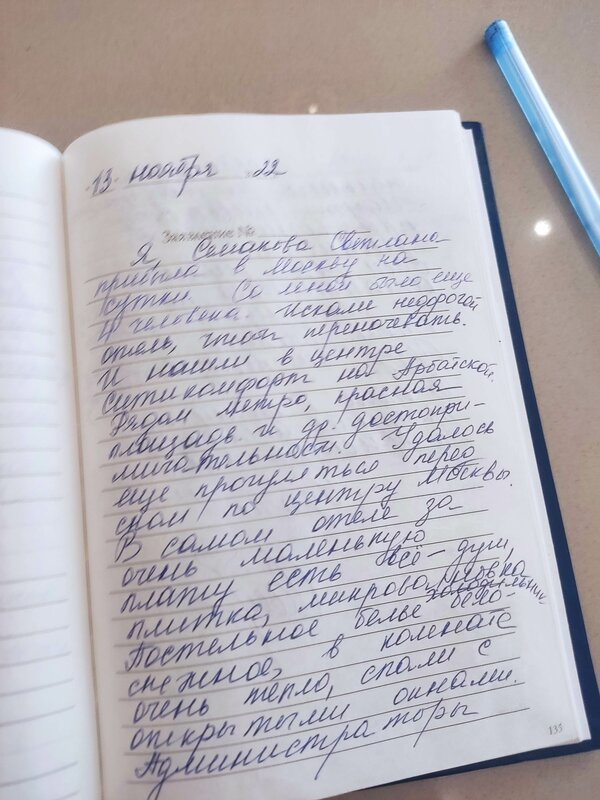 13 ноября 22
Замечание №
Я, Семакова Светлана
прибыла в Москву на
сутки. Со мной было еще
4 человека. Искали недорогой
отель, чтобы переночевать.
И нашли в центре
Сити комфорт на Арбатской.
Рядом метро, красная
площадь и др. достопри-
мичательности. Удалось
еще прогуляться перед
сном по центру Москвы.
В самом отеле за
очень маленькую
плату есть всё - душ,
плитка, микроволновка
холодильник
Постельное белье бело-
снежное, в комнате
очень тепло, спали с
открытыми окнами.
Администраторы
135